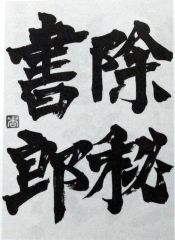 除秘
書郎